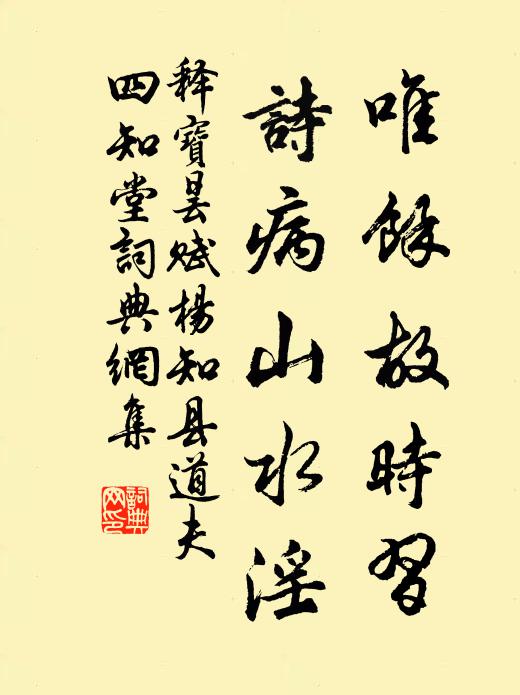 唯餘故時習
詩病山水淫
释寶昙赋楊知县道夫
四知堂詞典網集
詞典
网印